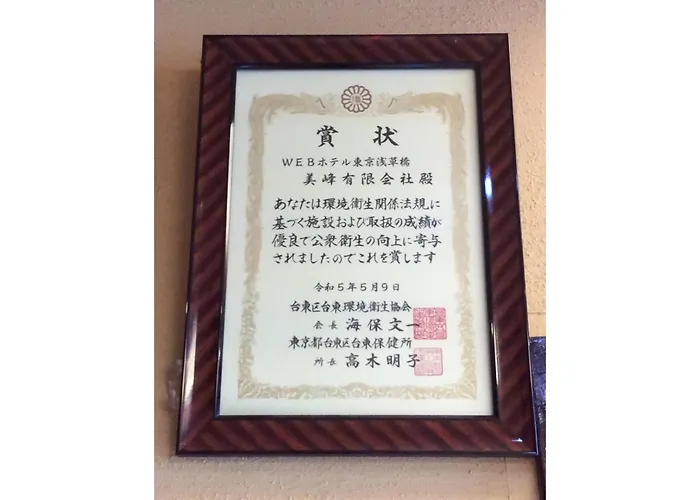 賞状
WEBホテル東京浅草橋
美峰有限会社殿
あなたは環境衛生関係法規に
基づく施設および取扱の成績が
優良で公衆衛生の向上に寄与
されましたのでこれを賞します
令和5年5月9日
台東区台東環境衛生協会
会長 海保文一
東京都台東区台東保健所
所長 高木明子